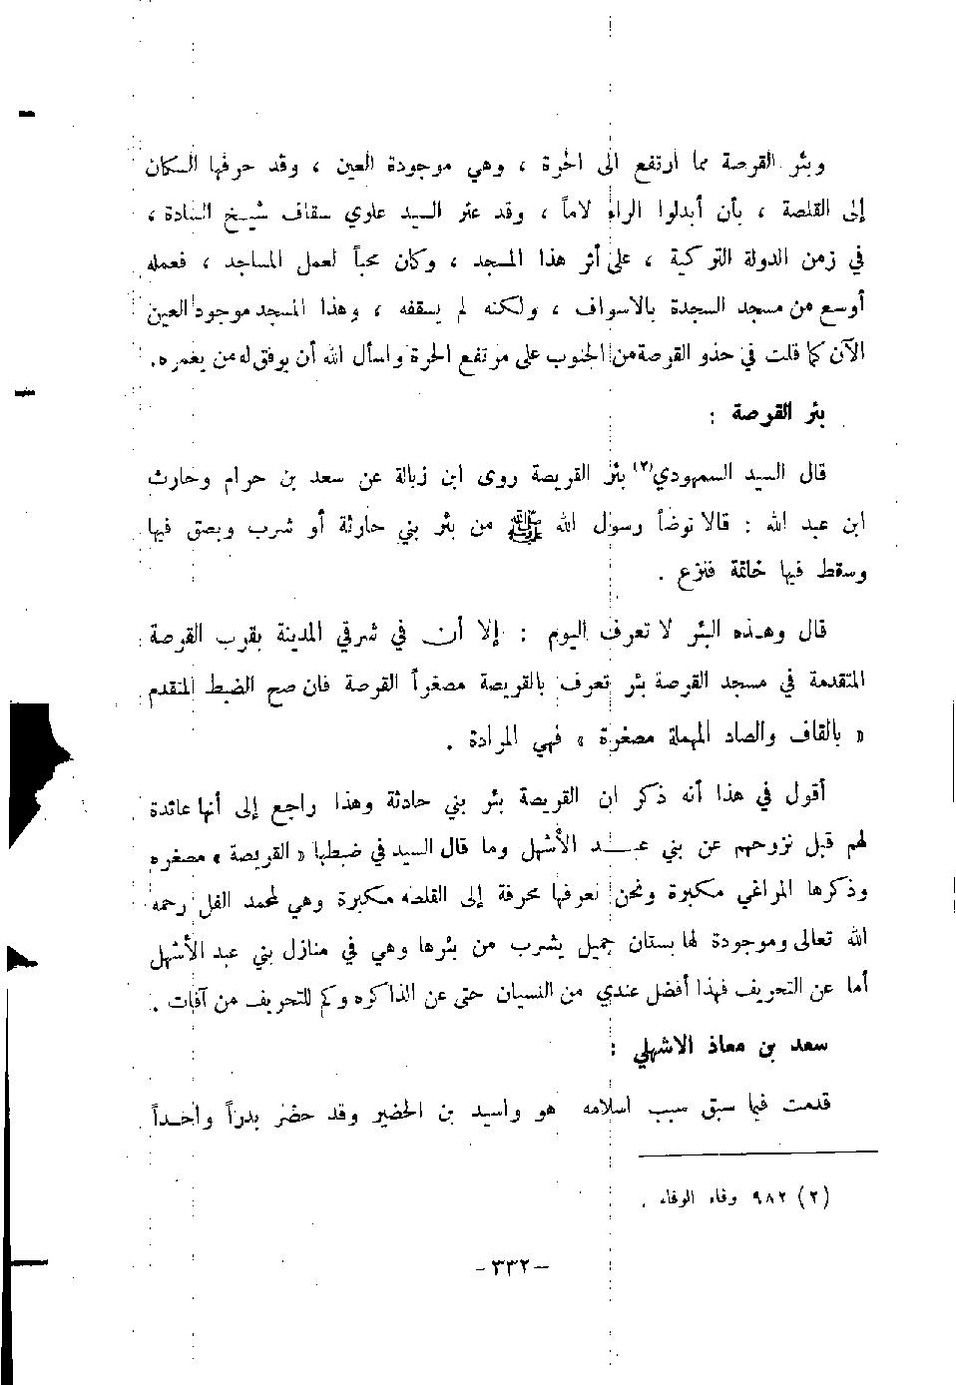 وبئر القرصة مما ارتفع الى الحرة ، وهي موجودة العين ، وقد حرفها السكان
إلى القلصة ، بأن أبدلوا الراء لاماً ، وقد عثر السيد علوي سقاف شيخ السادة ،
في زمن الدولة التركية ، على أثر هذا المسجد ، وكان محباً لعمل المساجد ، فعمله
أوسع من مسجد السجدة بالاسواف ، ولكنه لم يسقفه ، وهذا المسجد موجود العين
الآن كما قلت في حذو القرصة من الجنوب على مرتفع الحرة واسأل الله أن يوفق له من يعمره.
بئر القرصة :
قال السيد السمهودي(٢) بئر القريصة روى ابن زبالة عن سعد بن حرام وحارث
ابن عبد الله : قالا توضأ رسول الله ﷺ من بئر بني حارثة أو شرب وبصق فيها
وسقط فيها خاتمة فنزع .
قال وهذه البئر لا تعرف اليوم : إلا أن في شرقي المدينة بقرب القرصة
المتقدمة في مسجد القرصة بئر تعرف بالقريصة مصغراً القرصة فان صح الضبط المتقدم
« بالقاف والصاد المهملة مصغرة » فهي المرادة .
أقول في هذا أنه ذكر ان القريصة بئر بني حادثة وهذا راجع إلى أنها عائدة
لهم قبل نزوحهم عن بني عبد الأشهل وما قال السيد في ضبطها « القريصة » مصغره
وذكرها المراغي مكبرة ونحن نعرفها محرفة إلى القلصه مكبرة وهي لمحمد الفل رحمه
الله تعالى وموجودة لها بستان جميل يشرب من بئرها وهي في منازل بني عبد الأشهل
أما عن التحريف فهذا أفضل عندي من النسيان حتى عن الذاكره وكم للتحريف من آفات .
سعد بن معاذ الاشهلي :
قدمت فيما سبق سبب اسلامه هو واسيد بن الحضير وقد حضر بدراً واحداً
(٢) ٩٨٢ وفاء الوفاء .
-٣٣٢-